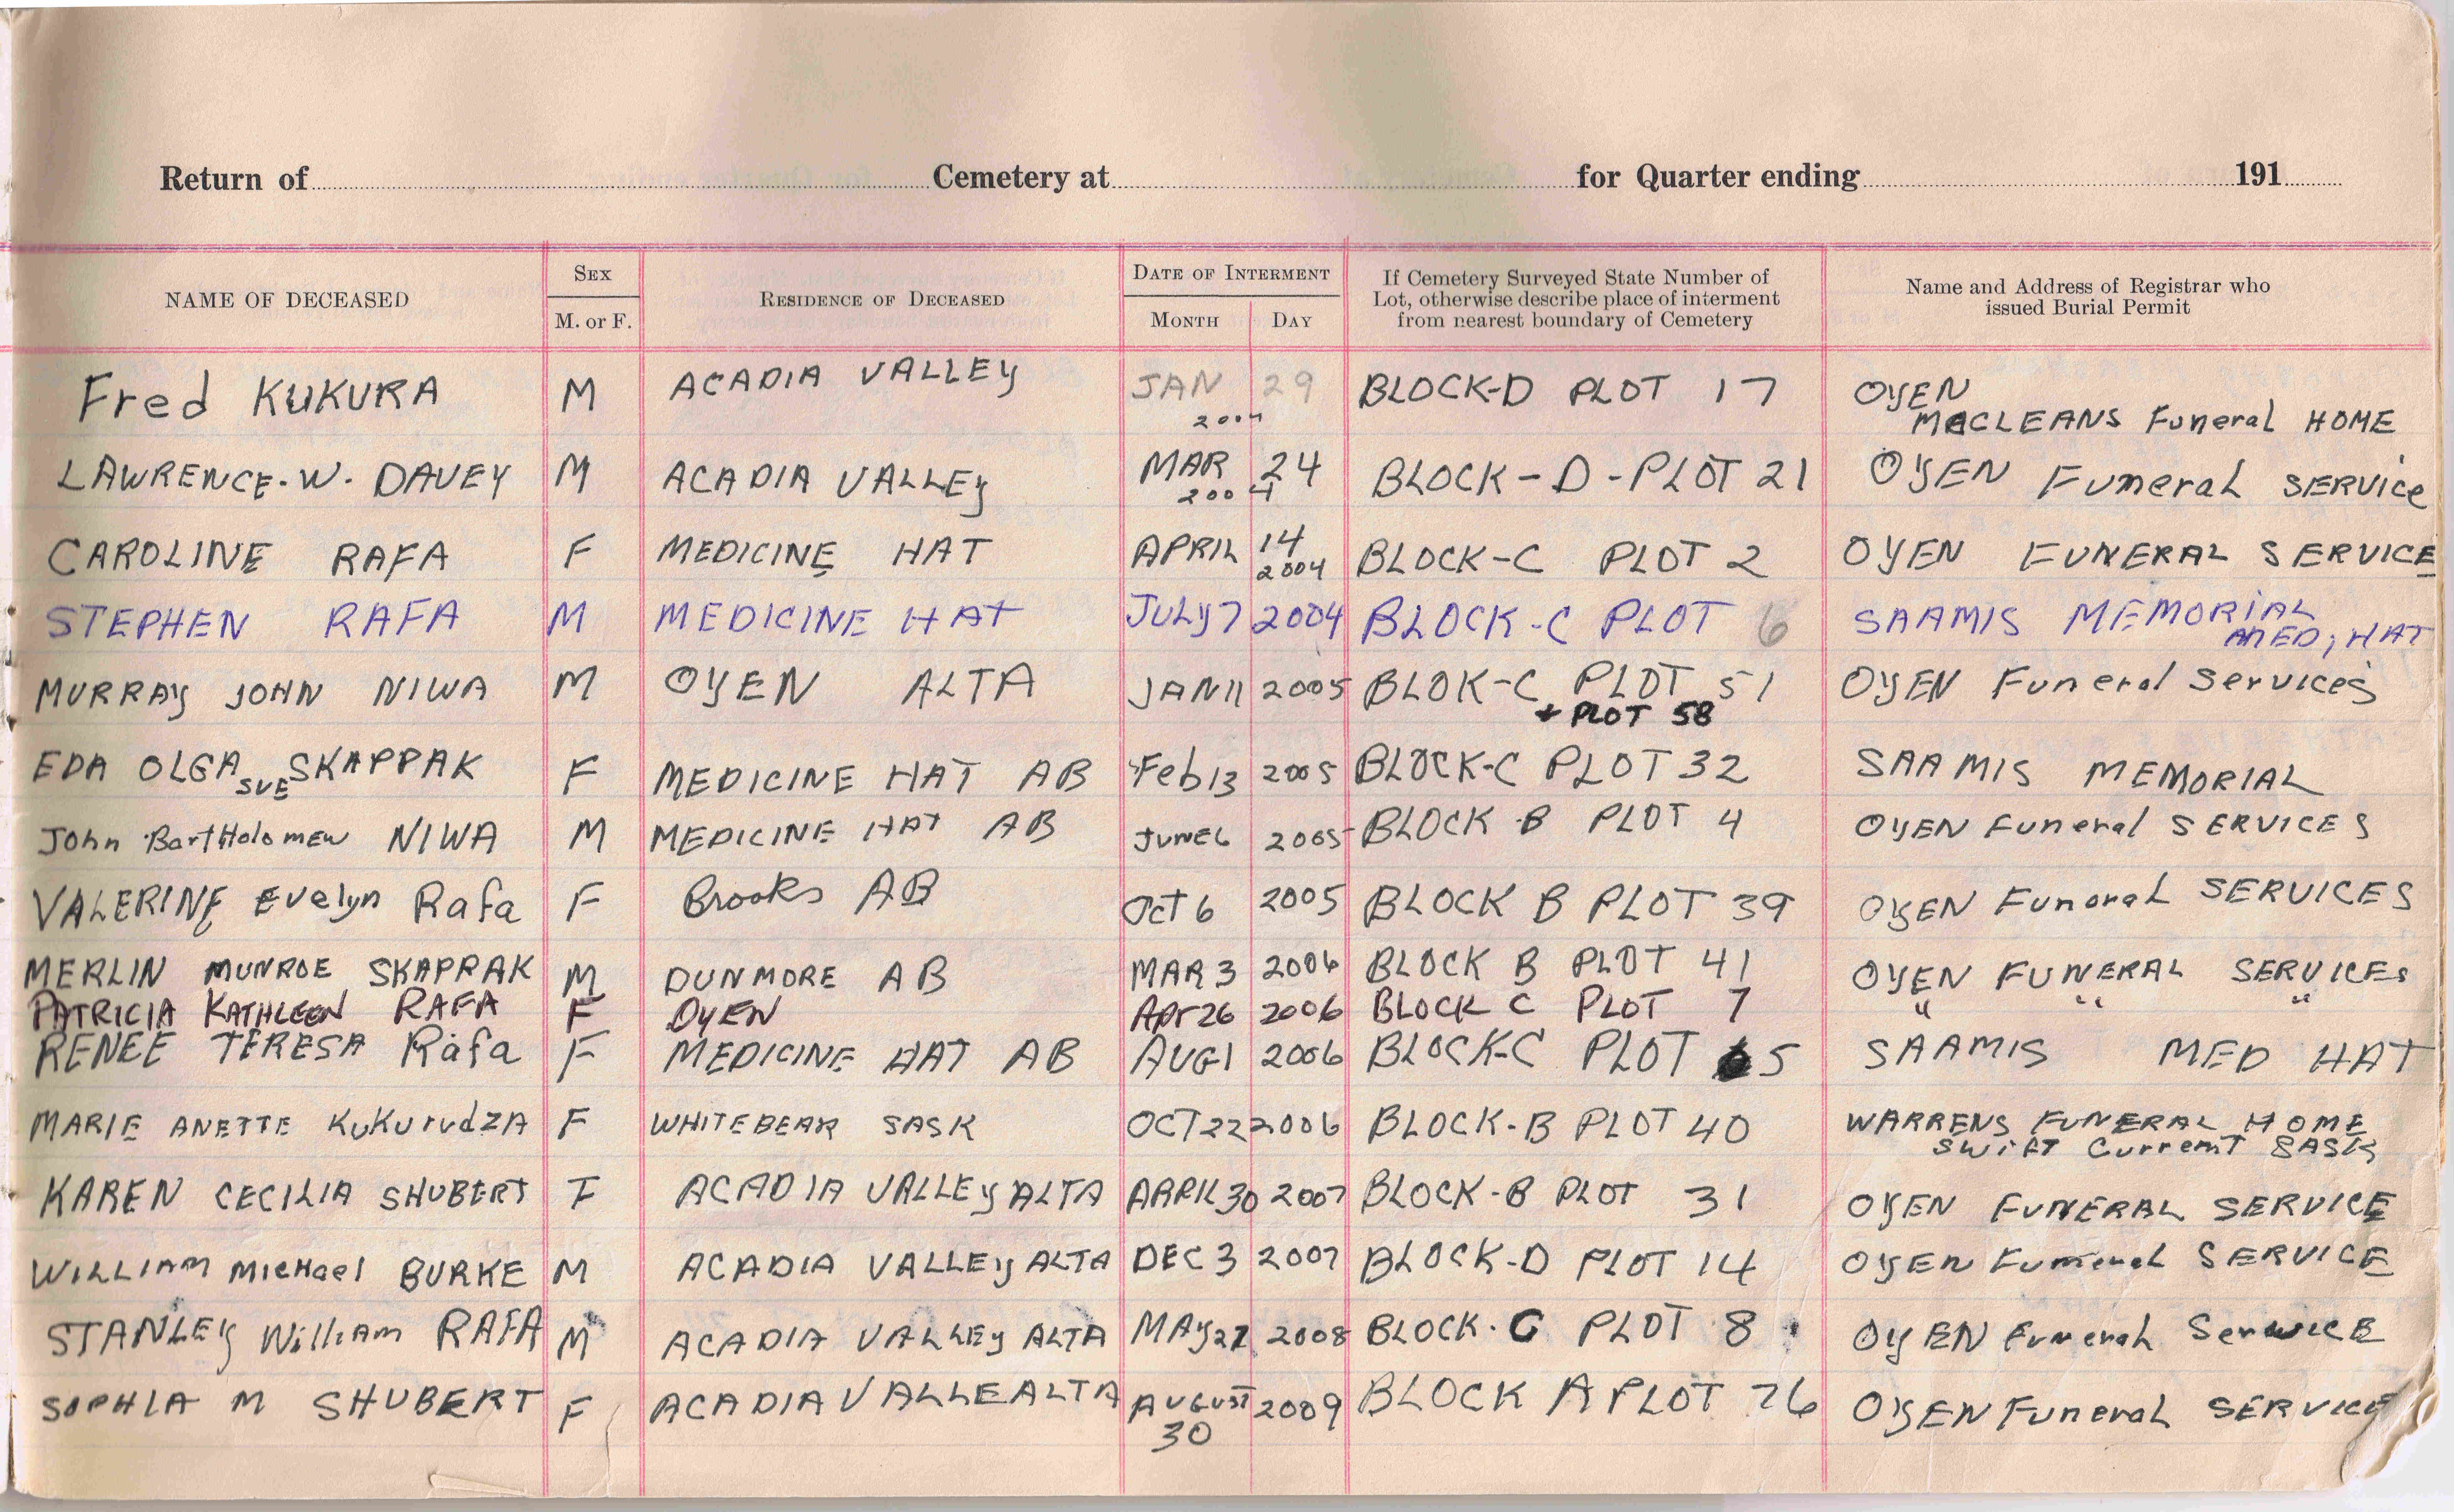 Return of Cemetery at for Quarter ending 191
NAME OF DECEASED SEX M. or F. RESIDENCE OF DECEASED DATE OF INTERMENT MONTH DAY If Cemetery Surveyed State Number of Lot, otherwise describe place of interment from nearest boundary of Cemetery Name and Address of Registrar who issued Burial Permit
Fred KUKURA M ACADIA VALLEY JAN 29 2004 BLOCK-D PLOT 17 OYEN MACLEANS Funeral HOME
LAWRENCE. W. DAVEY M ACADIA VALLEY MAR 24 2004 BLOCK-D-PLOT 21 OYEN Funeral SERVICe
CAROLINE RAFA F MEDICINE HAT APRIL 14 2004 BLOCK-C PLOT 2 OYEN FUNERAL SERVICE
STEPHEN RAFA M MEDICINE HAT JULY 7 2004 BLOCK-C PLOT 6 SAAMIS MEMORIAL MED, HAT
MURRAY JOHN NIWA M OYEN ALTA JAN 11 2005 BLOK-C PLOT 51 + PLOT 58 OYEN Funeral Services
EDA OLGA SUE SKAPPAK F MEDICINE HAT AB Feb 13 2005 BLOCK-C PLOT 32 SAAMIS MEMORIAL
John BartHolomew NIWA M MEDICINE HAT AB JUNE 6 2005 BLOCK B PLOT 4 OYEN Funeral SERVICES
VALERINE Evelyn Rafa F Brooks AB Oct 6 2005 BLOCK B PLOT 39 OYEN Funeral SERVICES
MERLIN MUNROE SKAPPAK M DUNMORE AB MAR 3 2006 BLOCK B PLOT 41 OYEN FUNERAL SERVICES
PATRICIA KATHLEEN RAFA F OYEN Apr 26 2006 BLOCK C PLOT 7 " " "
RENEE TERESA Rafa F MEDICINE HAT AB AUG 1 2006 BLOCK-C PLOT 5 SAAMIS MED HAT
MARIE ANETTE KuKurudZA F WHITEBEAR SASK OCT 22 2006 BLOCK-B PLOT 40 WARRENS FUNERAL HOME Swift Current SASK
KAREN CECILIA SHUBERT F ACADIA VALLEY ALTA APRIL 30 2007 BLOCK-B PLOT 31 OYEN FUNERAL SERVICE
WILLIAM MicHael BURKE M ACADIA VALLEY ALTA DEC 3 2007 BLOCK-D PLOT 14 OYEN Funeral SERVICE
STANLEY William RAFA M ACADIA VALLEY ALTA MAY 27 2008 BLOCK-C PLOT 8 OYEN Funeral Service
SOPHIA M SHUBERT F ACADIA VALLE ALTA AUGUST 30 2009 BLOCK A PLOT 76 OYEN Funeral SERVICE